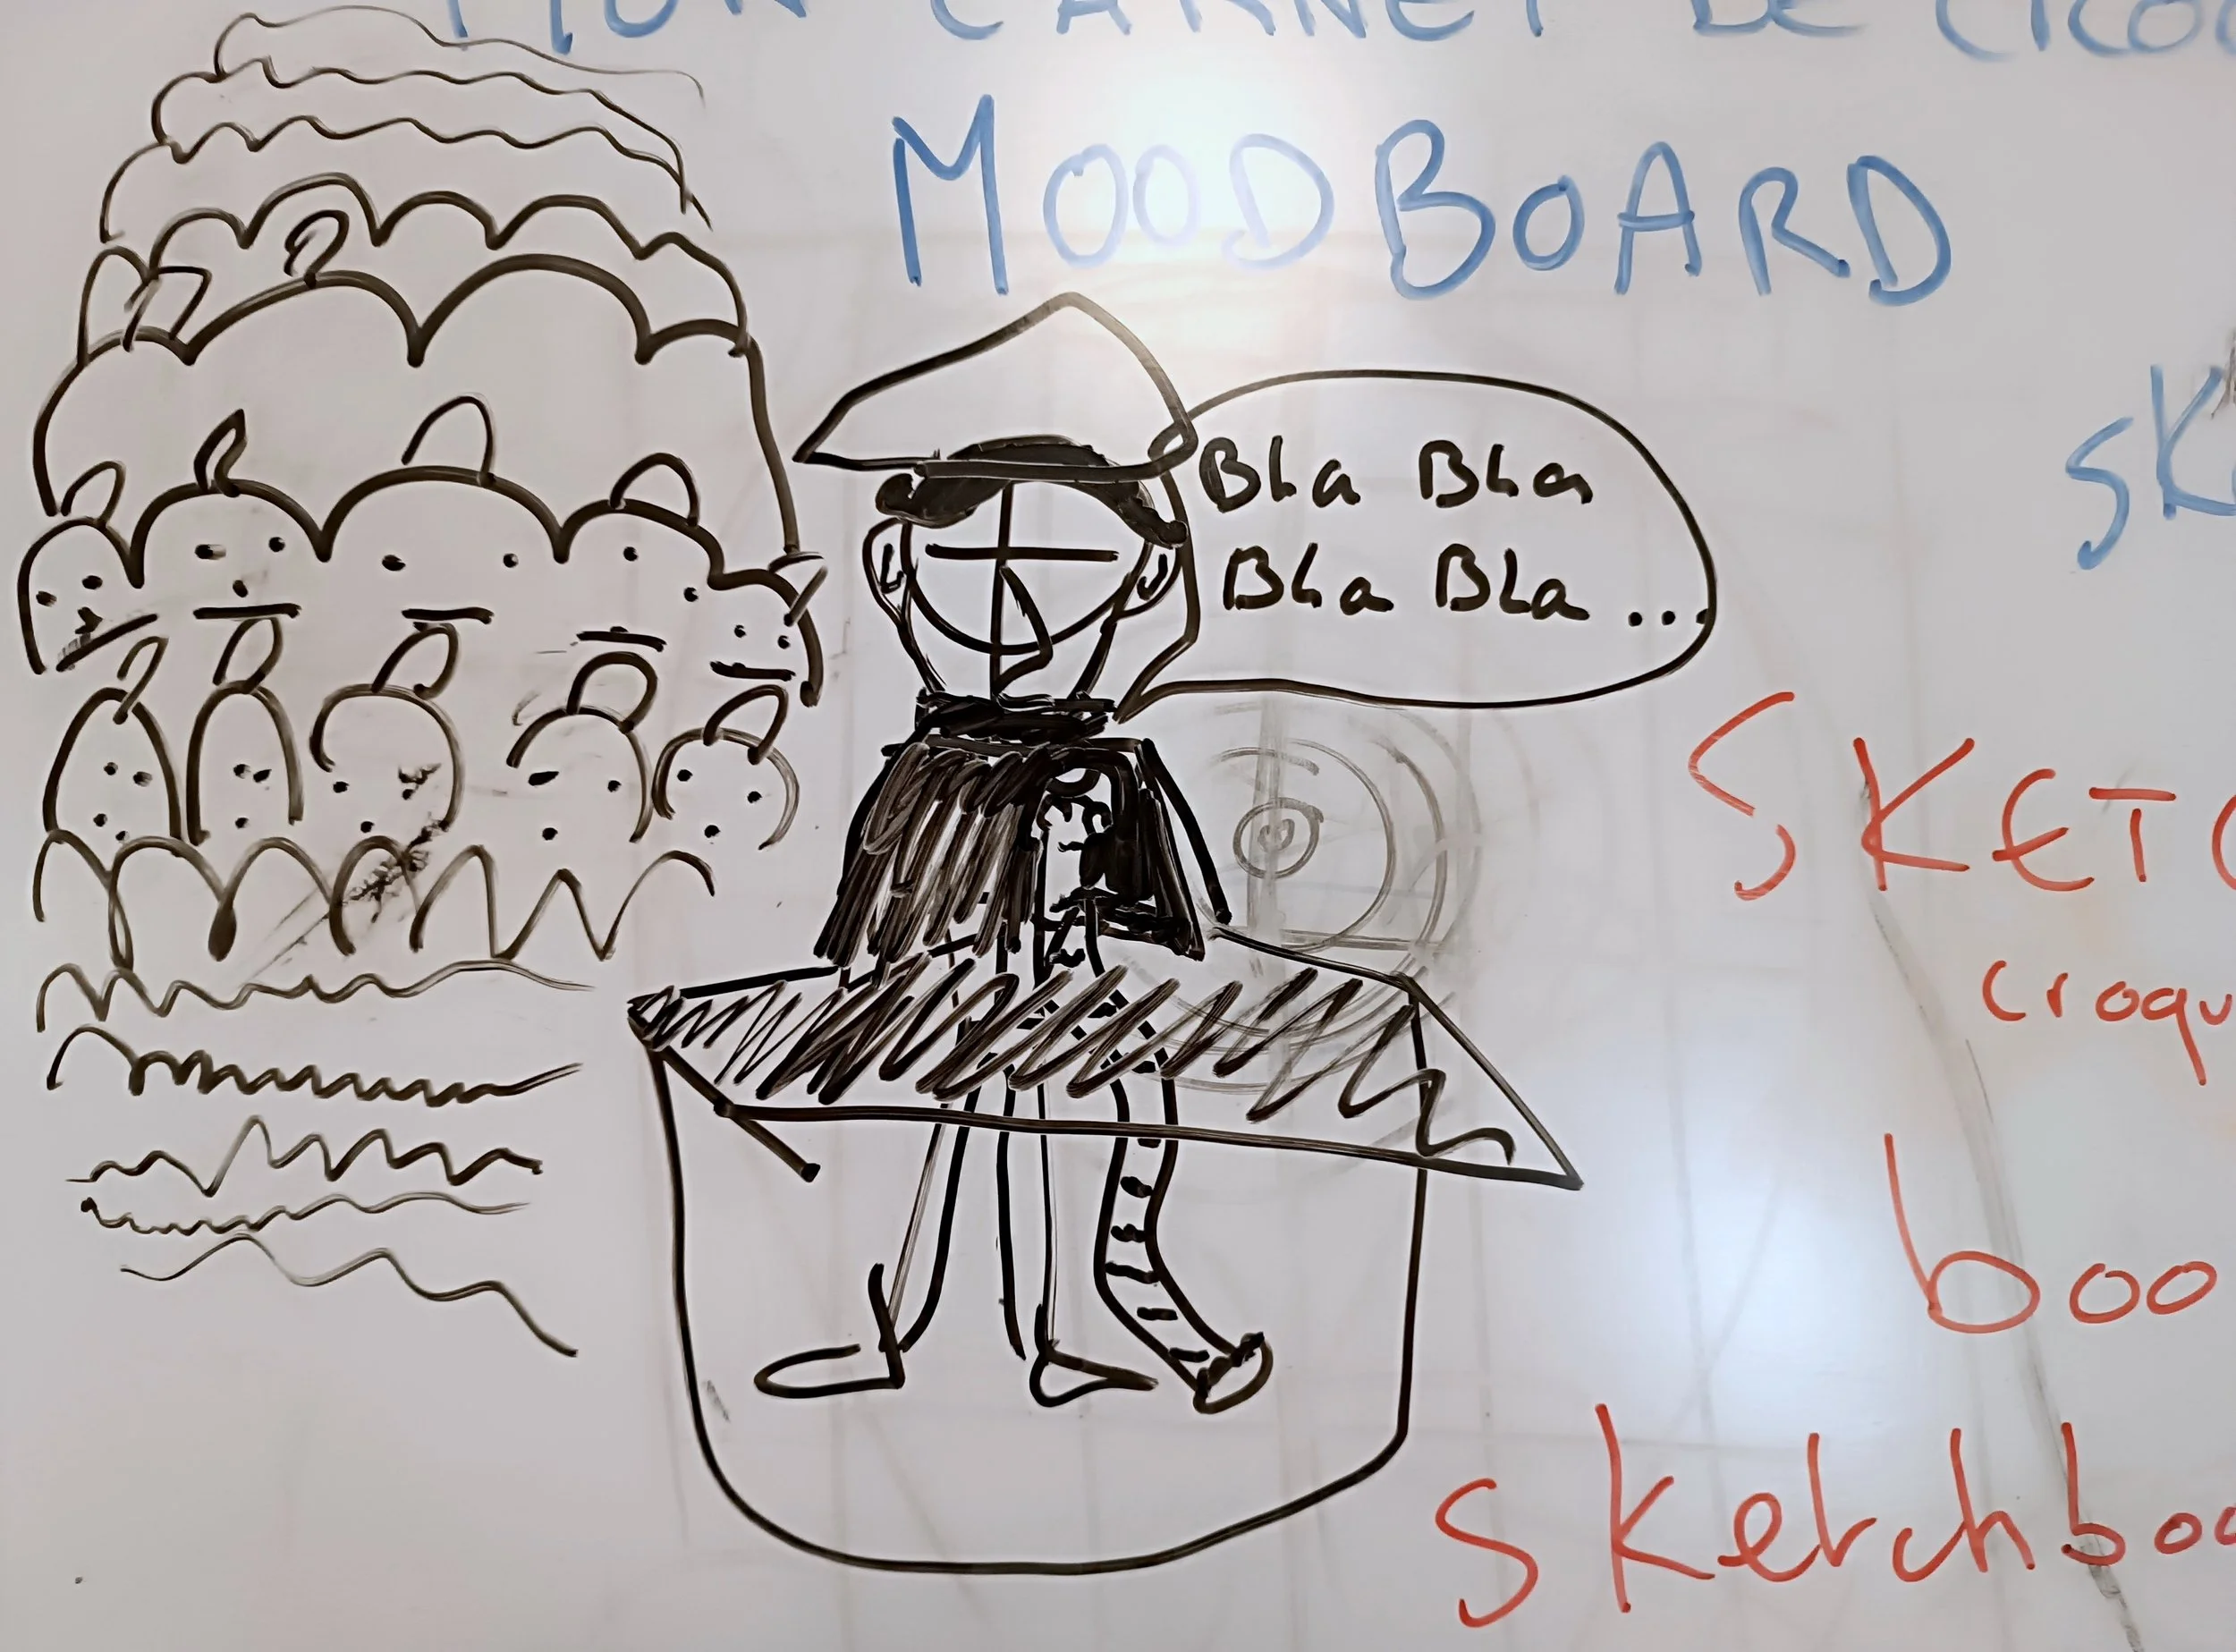 MON CARNET DE
MOODBOARD
Bla Bla
Bla Bla ...
SK
SKETC
croqu
boo
sketchboo